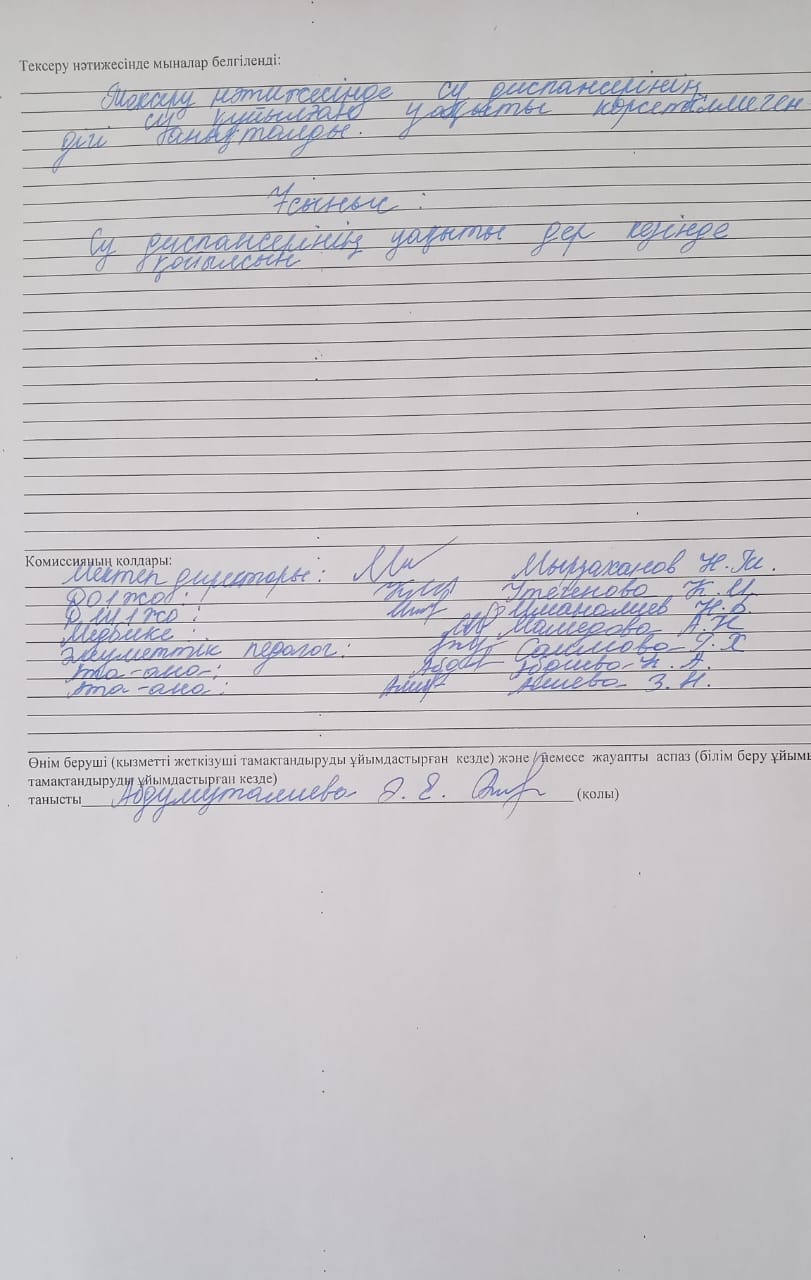 Тексеру нәтижесінде мыналар белгіленді:
Тексеру нәтижесінде су диспансерінің
су құйылған уақыты көрсетілмеген
дігі анықталды.
Ұсыныс:
Су диспансерінің уақыты дер кезінде
қойылсын
Комиссияның қолдары:
Мектеп директоры: Мырзаханов Н.М.
ДОІЖО: Утегенова К.Ц
ДТІЖО: Иманалиев Н.Б.
Медбике: Машерова А.Н
Әлеуметтік педагог: Салимова Г.Х
Ата-ана: К.А.
Ата-ана: Алиева З.Н.
Өнім беруші (қызметті жеткізуші тамақтандыруды ұйымдастырған кезде) және /немесе жауапты аспаз (білім беру ұйымы
тамақтандыруды ұйымдастырған кезде)
танысты Абдумуталиева Э.Е. (қолы)